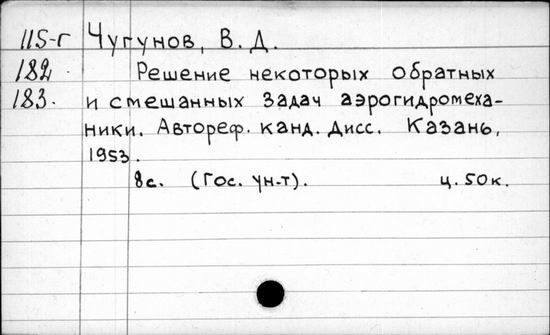 115-г Чугунов, В. Д.
182 Решение некоторых обратных
183. и смешанных задач аэрогидромеха-
ники. Автореф. канд. дисс. Казань,
1953.
8с. (Гос. ун-т). ц. 50к.